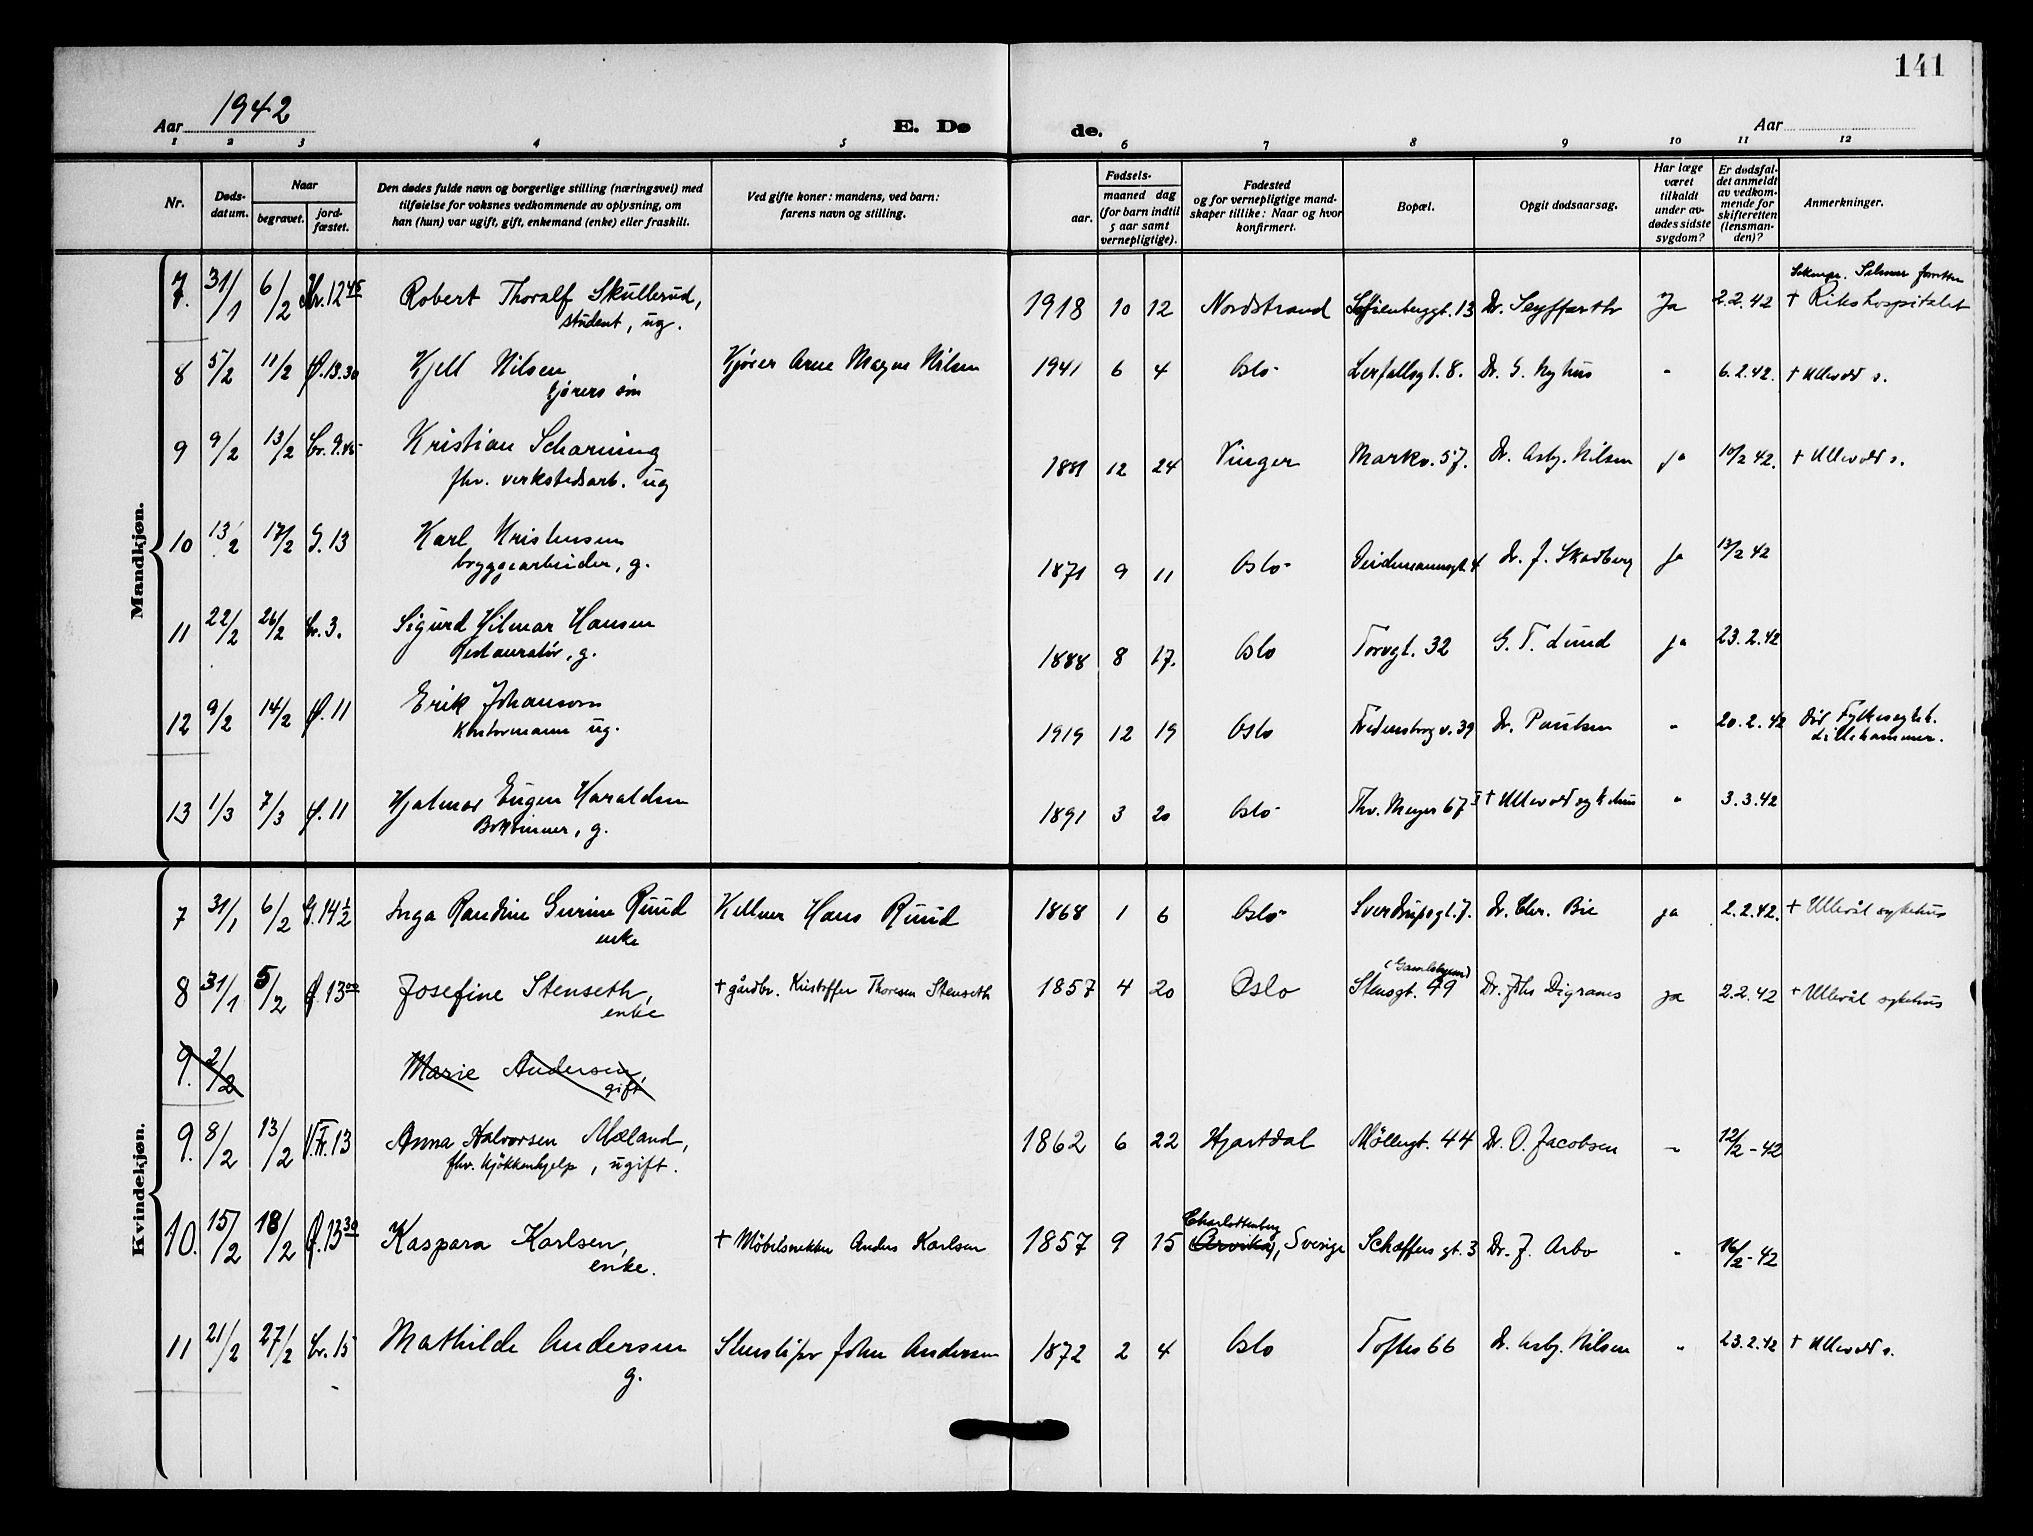 141
Aar 1942
E. Dø
de.
Aar
1 2 3 4 5 6 7 8 9 10 11 12
Nr.
Døds-
datum.
Naar
begravet.
jord-
fæstet.
Den dødes fulde navn og borgerlige stilling (næringsvei) med
tilføielse for voksnes vedkommende av oplysning, om
han (hun) var ugift, gift, enkemand (enke) eller fraskilt.
Ved gifte koner: mandens, ved barn:
farens navn og stilling.
Fødsels-
aar.
maaned dag
(for barn indtil
5 aar samt
vernepligtige).
Fødested
og for vernepligtige mand-
skaper tillike: Naar og hvor
konfirmert.
Bopæl.
Opgit dødsaarsag.
Har læge
været
tilkaldt
under av-
dødes sidste
sygdom?
Er dødsfal-
det anmeldt
av vedkom-
mende for
skifteretten
(lensman-
den)?
Anmerkninger.
Mandkjøn.
7. 31/1 6/2 Kr. 12 45 Robert Thoralf Skullerud, 1918 10 12 Nordstrand Sofienberggt. 13 Dr. Seyffarth Ja 2.2.42 + Rikshospitalet
student, ug.
8 5/2 11/2 Ø. 13.30 Kjell Nilsen Kjører Arne Magne Nilsen 1941 6 4 Oslo Lerfallsgt. 8. Dr. G. Nyhus " 6.2.42. + Ullevold s.
kjørers søn
9 9/2 13/2 Cr. 9.45 Kristian Scharning 1881 12 24 Vinger Markv. 57. Dr. Asbj. Nilsen ja 10/2 42. + Ullevold s.
fhv. verkstedsarb. ug
10 13/2 17/2 G. 13 Karl Kristensen 1871 9 11 Oslo Deichmannsgt. 4 Dr. J. Skadberg ja 13/2 42
bryggearbeider, g.
11 22/2 26/2 Cr. 3. Sigurd Hilmar Hansen 1888 8 17. Oslo Torvgt. 32 G. T. Lund ja 23.2.42
Restauratør, g.
12 9/2 14/2 Ø. 11 Erik Johansson 1919 12 19 Oslo Fredensborg v. 39 Dr. Paulsen " 20.2.42 død Fylkessykeh.
Kontormann ug. Lillehammer.
13 1/3 7/3 Ø. 11 Hjalmar Eugen Haraldsen 1891 3 20 Oslo Thv. Meyer 67 I + Ullevold sykehus " 3.3.42
Bokbinner, g.
Kvindekjøn.
7 31/1 6/2 G. 14 1/2 Inga Randine Gurine Ruud Kellner Hans Ruud 1868 1 6 Oslo Sverdrupsgt. 7. Dr. Chr. Bie ja 2.2.42. + Ullevål sykehus
enke
(Gamlehjem)
8 31/1 5/2 Ø. 13 00 Josefine Stenseth, + gårdbr. Kristoffer Thoresen Stenseth 1857 4 20 Oslo Stensgt. 49 Dr. Johs Digranes ja 2.2.42 + Ullevål sykehus
enke
9. 2/2 Marie Andersen,
gift
9. 8/2 13/2 V.Fr. 13 Anna Halvorsen Mæland, 1862 6 22 Hjartdal Møllergt. 44 Dr. O. Jacobsen " 12/2-42
fhv. kjøkkenhjelp, ugift.
Charlottenberg
10. 15/2 18/2 Ø. 13 30 Kaspara Karlsen, + Møbelsnekker Anders Karlsen 1857 9 15 (Arvika), Sverige Schæffers gt. 3 Dr. J. Arbo " 16/2-42
enke.
11 21/2 27/2 Cr. 15 Mathilde Andersen Stensliper John Andersen 1872 2 4 Oslo Toftes 66 Dr. Asbj. Nilsen " 23.2.42 + Ullevold s.
g.